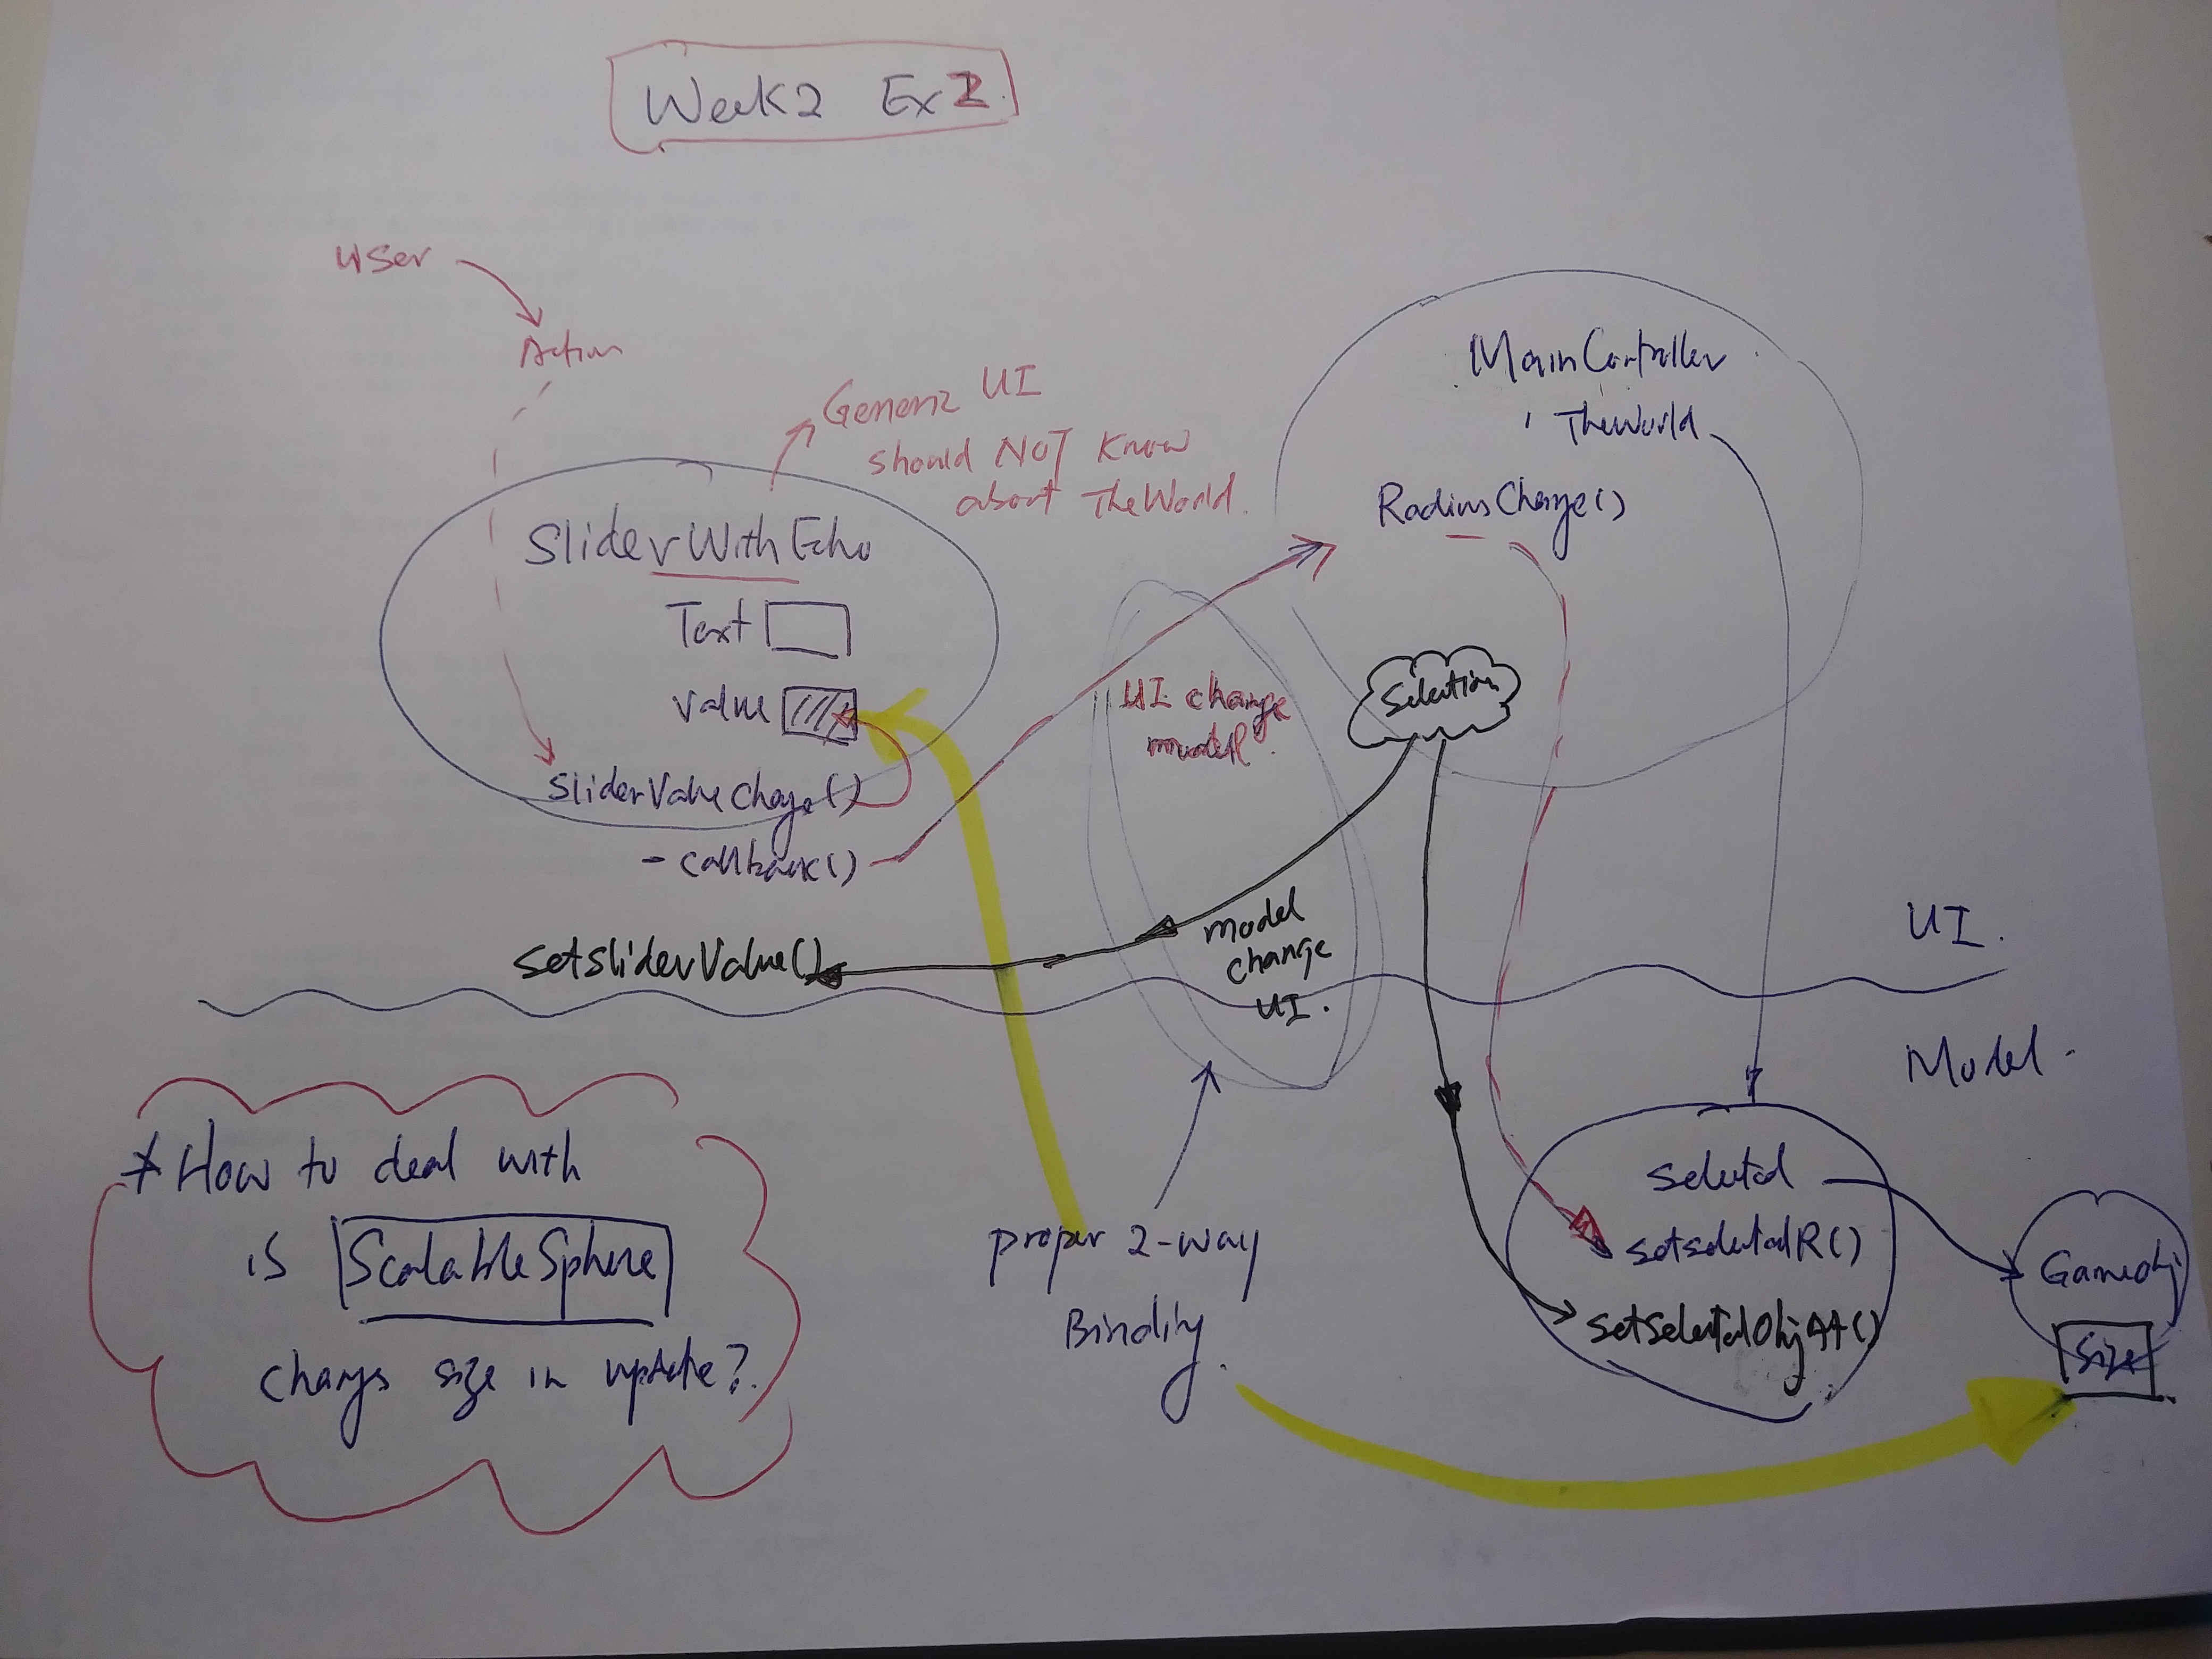 Week2 Ex2
User
Action
Generic UI
should NOT know
about TheWorld.
SliderWithEcho
Text
Value
SliderValueChange()
- callback()
SetSliderValue()
MainController
TheWorld
RadiusChange()
Selection
UI change
model.
model
change
UI.
UI.
Model.
* How to deal with
is ScalableSphere
changes size in update?
proper 2-way
Binding.
Selected
SetSelectedR()
SetSelectedObj
GameObj
Size